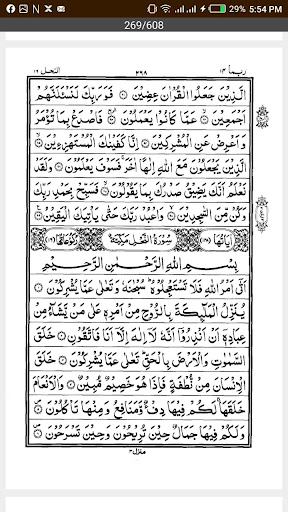 29% 5:54 PM
269/608
ربما ١٤
٢٩٨
النحل ١٦
الَّذِيْنَ جَعَلُوا الْقُرْاٰنَ عِضِيْنَ ۞ فَوَرَبِّكَ لَنَسْـَٔلَنَّهُمْ
اَجْمَعِيْنَ ۞ عَمَّا كَانُوْا يَعْمَلُوْنَ ۞ فَاصْدَعْ بِمَا تُؤْمَرُ
وَاَعْرِضْ عَنِ الْمُشْرِكِيْنَ ۞ اِنَّا كَفَيْنٰكَ الْمُسْتَهْزِءِيْنَ ۞
الَّذِيْنَ يَجْعَلُوْنَ مَعَ اللّٰهِ اِلٰهًا اٰخَرَ فَسَوْفَ يَعْلَمُوْنَ ۞ وَلَقَدْ
نَعْلَمُ اَنَّكَ يَضِيْقُ صَدْرُكَ بِمَا يَقُوْلُوْنَ ۞ فَسَبِّحْ بِحَمْدِ رَبِّكَ
وَكُنْ مِّنَ السّٰجِدِيْنَ ۞ وَاعْبُدْ رَبَّكَ حَتّٰى يَاْتِيَكَ الْيَقِيْنُ ۞
اٰيَاتُهَا (١٢٨) سُوْرَةُ النَّحْلِ مَكِّيَّةٌ رُكُوْعَاتُهَا (١٦)
بِسْمِ اللّٰهِ الرَّحْمٰنِ الرَّحِيْمِ
اَتٰى اَمْرُ اللّٰهِ فَلَا تَسْتَعْجِلُوْهُ سُبْحٰنَهٗ وَتَعٰلٰى عَمَّا يُشْرِكُوْنَ ۞
يُنَزِّلُ الْمَلٰٓئِكَةَ بِالرُّوْحِ مِنْ اَمْرِهٖ عَلٰى مَنْ يَّشَآءُ مِنْ
عِبَادِهٖٓ اَنْ اَنْذِرُوْٓا اَنَّهٗ لَآ اِلٰهَ اِلَّآ اَنَا فَاتَّقُوْنِ ۞ خَلَقَ
السَّمٰوٰتِ وَالْاَرْضَ بِالْحَقِّ تَعٰلٰى عَمَّا يُشْرِكُوْنَ ۞ خَلَقَ
الْاِنْسَانَ مِنْ نُّطْفَةٍ فَاِذَا هُوَ خَصِيْمٌ مُّبِيْنٌ ۞ وَالْاَنْعَامَ
خَلَقَهَا لَكُمْ فِيْهَا دِفْءٌ وَّمَنَافِعُ وَمِنْهَا تَاْكُلُوْنَ ۞
وَلَكُمْ فِيْهَا جَمَالٌ حِيْنَ تُرِيْحُوْنَ وَحِيْنَ تَسْرَحُوْنَ ۞
منزل ٣